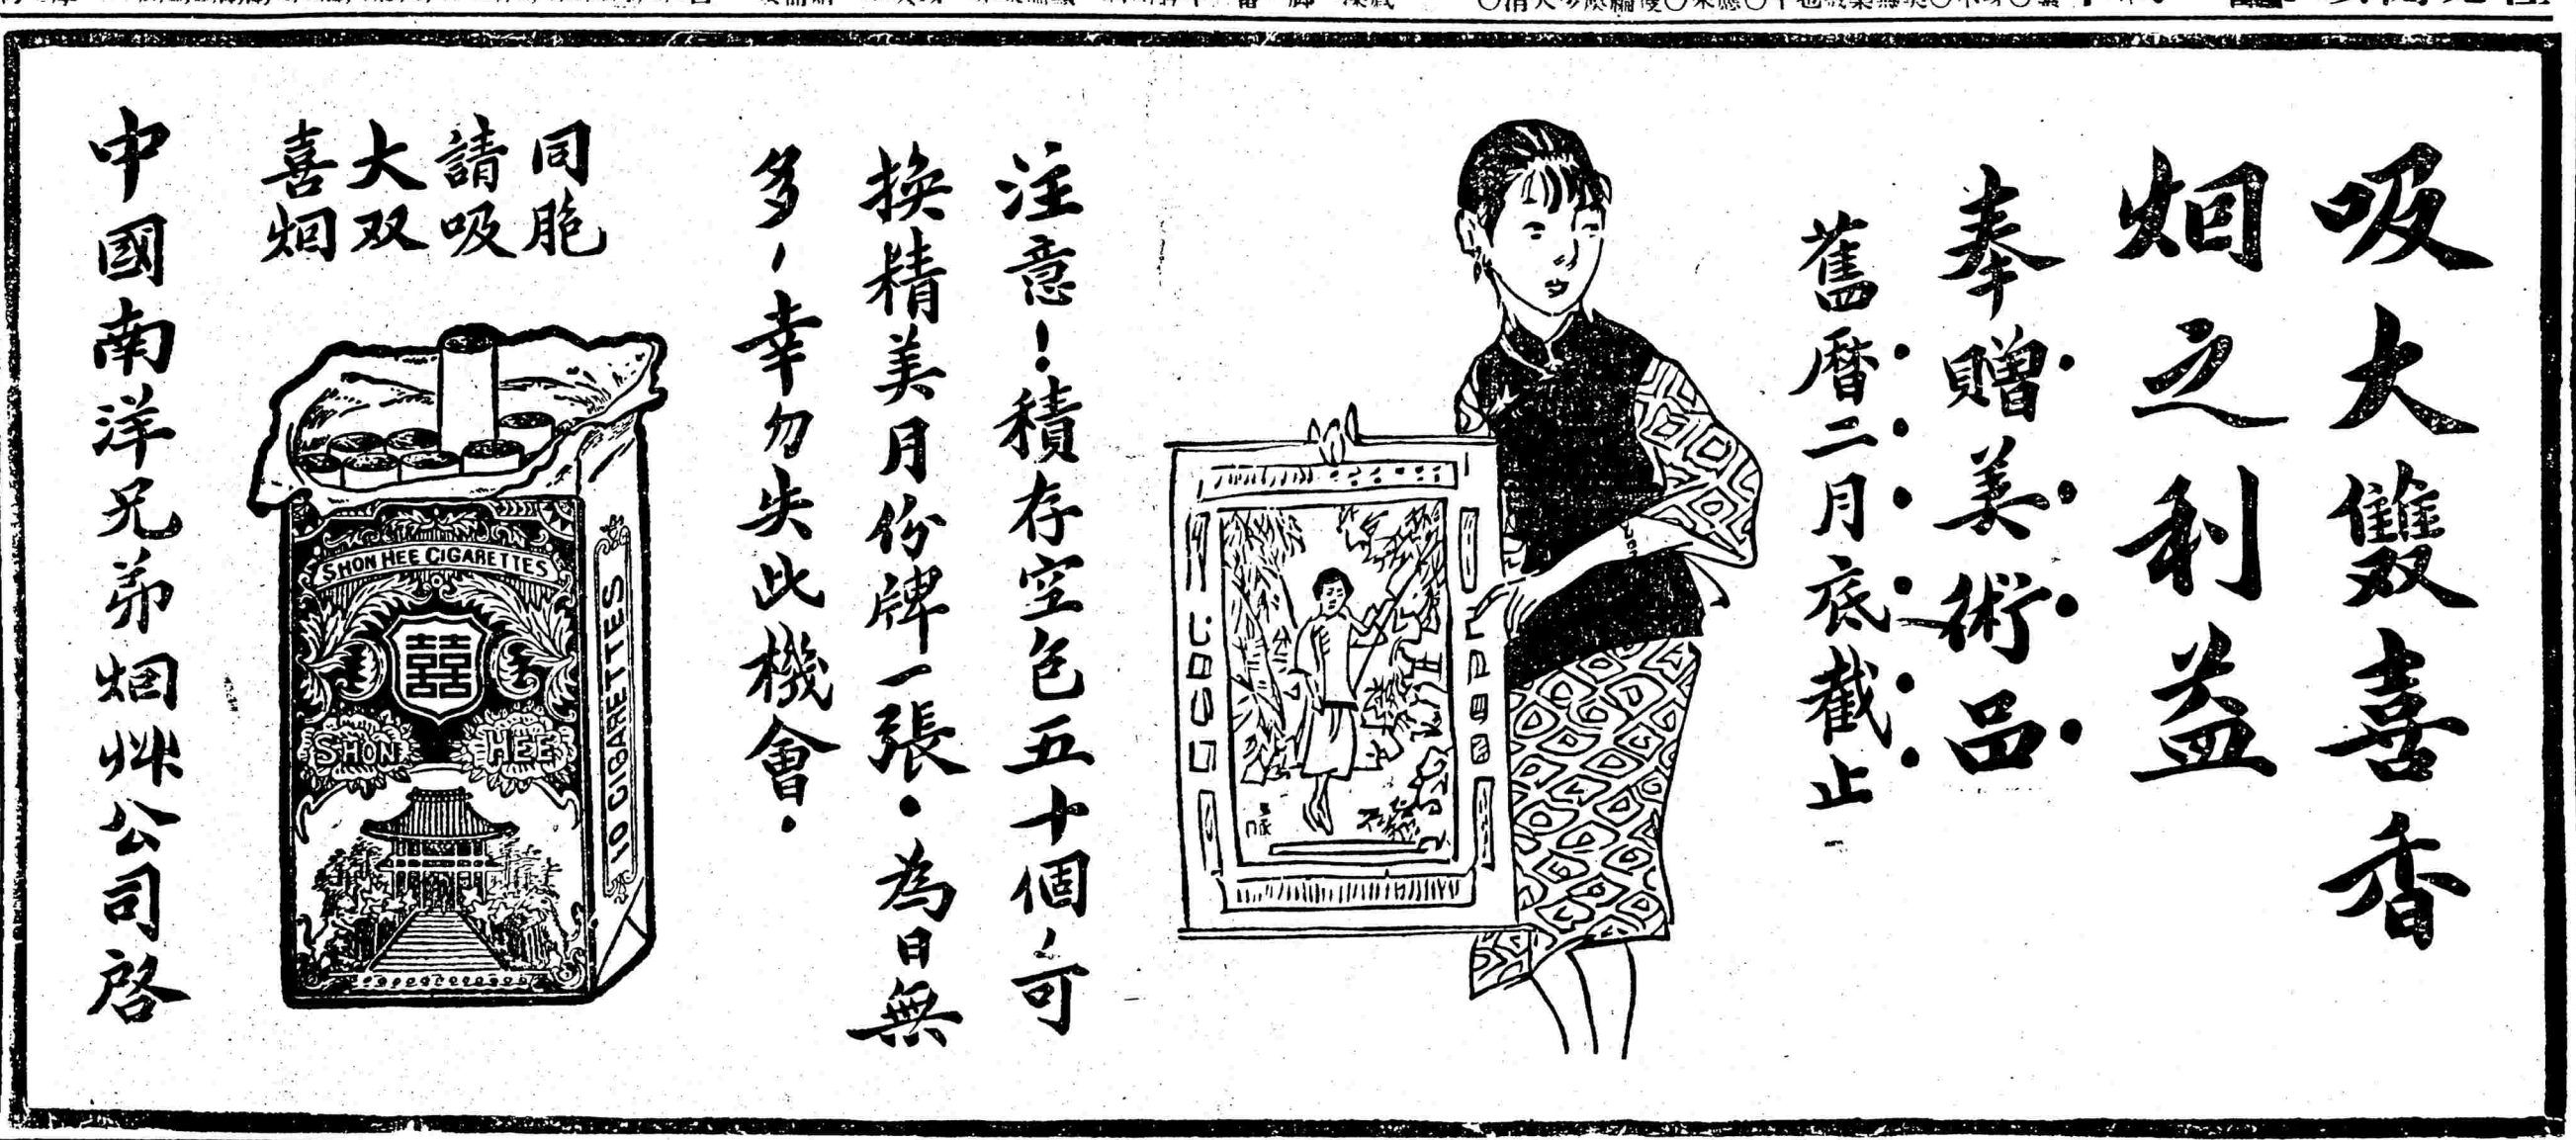 吸大雙喜香
烟之利益
奉贈美術品
舊曆二月底截止
注意！積存空包五十個可
換精美月份牌一張・為日無
多，幸勿失此機會・
同胞
請吸
大双
喜烟
SHON HEE CIGARETTES
囍
SHON HEE
10 CIGARETTES
中國南洋兄弟烟艸公司啓